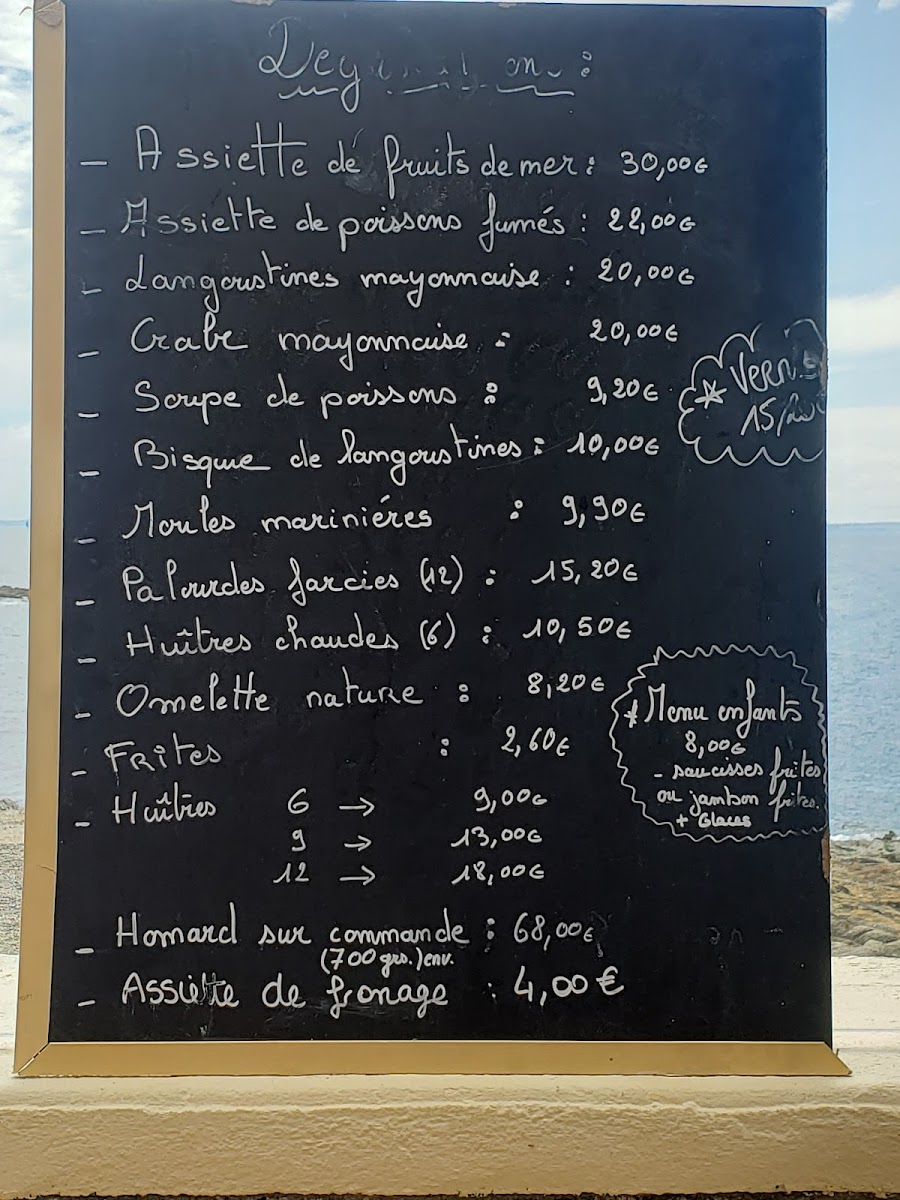 - Assiette de fruits de mer : 30,00€
- Assiette de poissons fumés : 22,00€
- Langoustines mayonnaise : 20,00€
- Crabe mayonnaise : 20,00€
- Soupe de poissons : 9,20€
- Bisque de langoustines : 10,00€
- Moules mariniéres : 9,90€
- Palourdes farcies (12) : 15,20€
- Huîtres chaudes (6) : 10,50€
- Omelette nature : 8,20€
- Frites : 2,60€
- Huîtres 6 → 9,00€
9 → 13,00€
12 → 18,00€
- Homard sur commande : 68,00€
(700 grs.) env.
- Assiette de fromage : 4,00€
* Vernis
* Menu enfants
8,00€
- saucisses frites
ou jambon frites.
+ Glaces